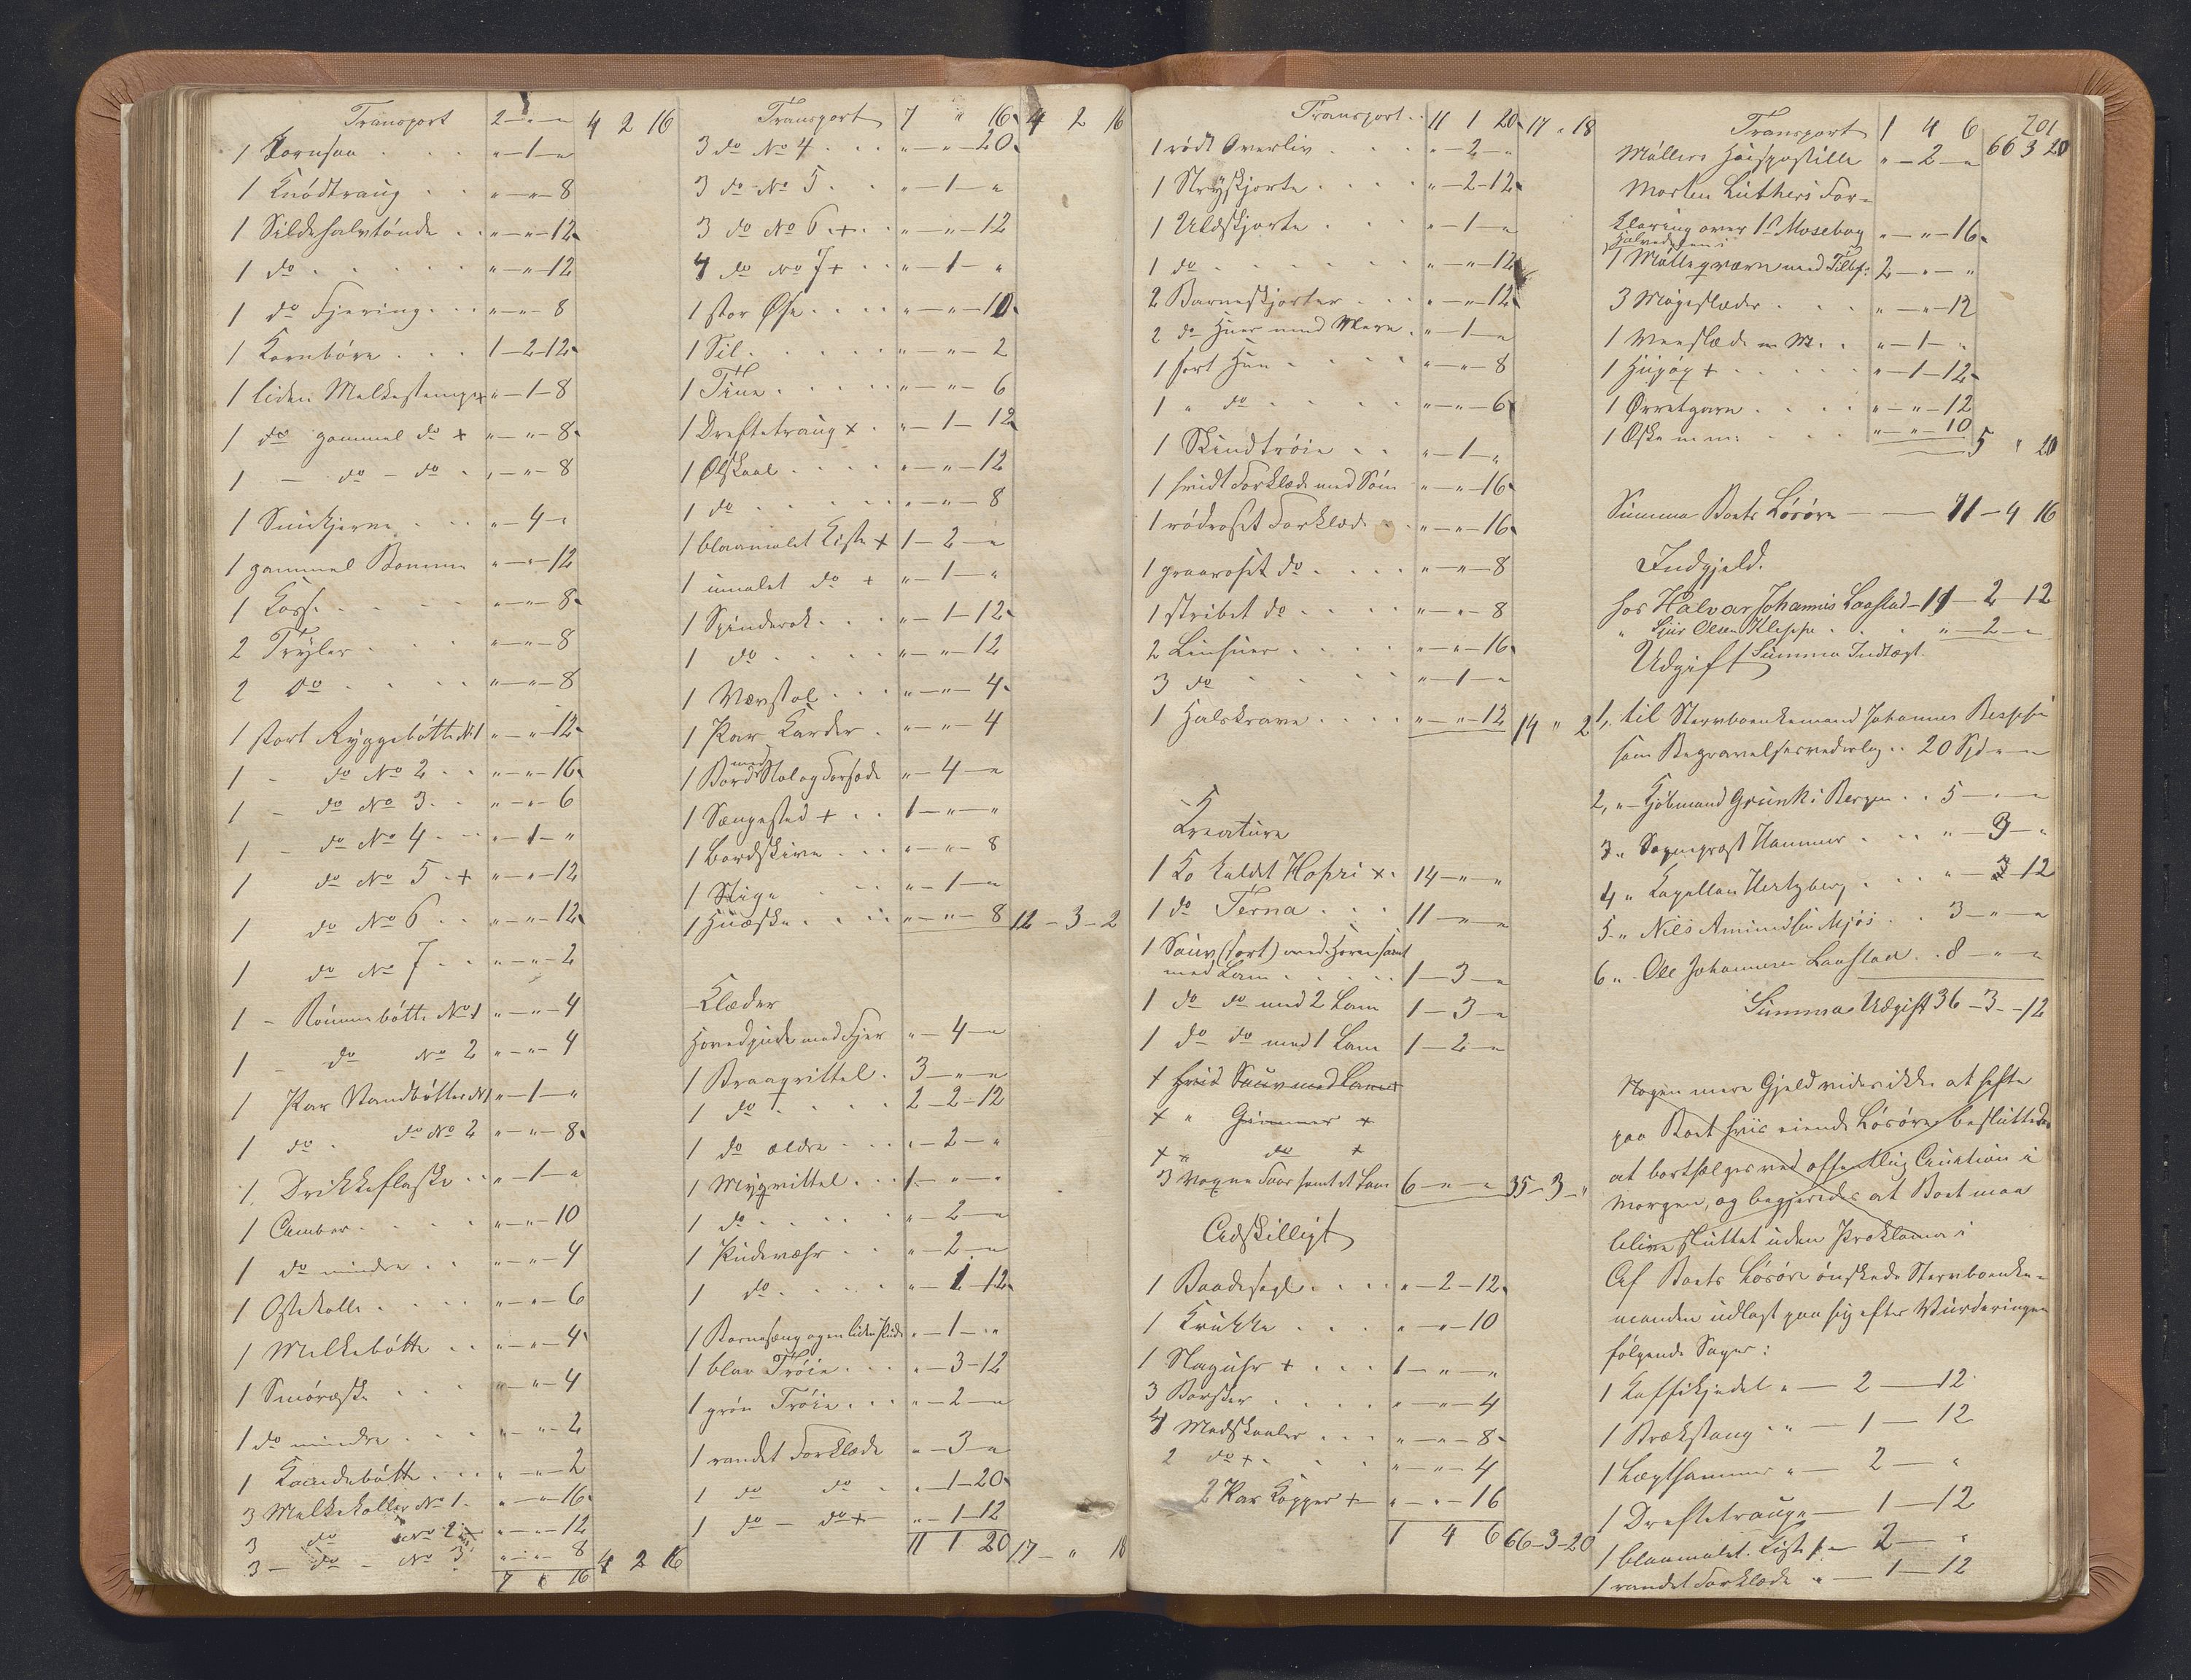 Transport 2 - " - " 4 2 16
1 Kornsaa . . . " - 1 - "
1 Knódtraug . . " - " - 8
1 Sildehalvtónde . . " - " - 12
1 do . . . . " - " - 12
1 do Fjering . . " - " - 8
1 Kornbóre . . . 1 - 2 - 12
1 liden Melkestamp + " - 1 - 8
1 do gammel do + " - " - 8
1 - do - do . " - " - 8
1 Smrkjerne . . " - 4 - "
1 gammel Bomme " - " - 12
1 Kasse . . . " - " - 8
2 Tryler . . . " - " - 8
2 do . . . . " - " - 8
1 stort Ryggebótte No 1 " - " - 12
1 - do No 2 . . " - " - 16
1 - do No 3 . . " - " - 6
1 - do No 4 . . " - 1 - "
1 do No 5 . + " - " - 12
1 do No 6 . . " - " - 12
1 do No 7 . . " - " - 2
1 - Rómmebótte No 1 " - " - 4
1 - do No 2 " - " - 4
1 Par Vandbótter No 1 " - 1 - "
1 do . do No 2 " - " - 8
1 Drikkeflaske . . " - 1 - "
1 Ambar . . . . " - " - 10
1 do mindre . . " - " - 4
1 Ostekolle . . . " - " - 6
1 Melkebótte . . " - " - 4
1 Smóræske . . . " - " - 4
1 do mindre . . . " - " - 2
1 Kandebótte . . . " - " - 2
3 Melkekoller No 1 . " - " - 16
3 do No 2 + " - " - 12
3 - do - No 3 " - " - 8 4 2 16
7 " 16
Transport 7 " 16 4 2 16
3 do No 4 . . . " - " - 20
3 do No 5 . . " - 1 - "
3 do No 6 . + . . " - " - 12
4 do No 7 + . . " - 1 - "
1 stor Øse . . . . " - " - 10
1 Sil . . . . . " - " - 2
1 Tine . . . . . " - " - 6
1 Dreftetraug x . " - 1 - 12
1 Ølskaal . . . . " - " - 12
1 do . . . . . " - " - 8
1 blaamalet Kiste + 1 - 2 - "
1 umalet do + " - 1 - "
1 Spinderok . . . " - 1 - 12
1 do . . . . " - " - 12
1 Vævstol . . . " - " - 4
1 Par Karder . " - " - 4
1 Bord med Stol og Forsæde " - 4 - "
1 Sængested + . . 1 - " - "
1 Bordskive . . . " - " - 8
1 Stige . . . " - 1 - "
1 Huæske . . . . " - " - 8 12 - 3 - 2
Klæder
Hovedpude med Fjer " - 4 - "
1 Braaqvittel . 3 - " - "
1 do . . . . 2 - 2 - 12
1 do ældre . . . " - 2 - "
1 Myqvittel . . . 1 - " - "
1 do . . . . . " - 2 - "
1 Pudevahr . . " - 2 - "
1 do . . . . " - 1 - 12
1 Barnesæng og en liden Pude " - 1 - "
1 blaa Tróie . . . " - 3 - 12
1 grón Tróie . . . " - 2 - "
1 randet Forklæde " - 3 - "
1 do do . " - 1 - 20
1 do - do + " - 1 - 12
11 1 20 17 - " 18
Transport . . 11 1 20 17 " 18
1 rødt Overliv . . . " - 2 - "
1 Stryskjorte . . . . " - 2 - 12
1 Uldskjorte . . . " - 1 - "
1 do . . . . . . " - " - 12
2 Barneskjorter . . . " - " - 12
2 do Huer med Mere . " - 1 - "
1 sort Hue . . . . " - " - 8
1 " do . . . . " - " - 6
1 Skindtróie . . " - 1 - "
1 hvidt Forklæde med Sóm " - " - 16
1 ródroset Forklæde . . " - " - 16
1 graaroset do . . . . " - " - 8
1 stribet do . . . . " - " - 8
2 Linhuer . . . . " - " - 16
3 do . . . . . " - 1 - "
1 Halskrave . . . . " - " - 12 14 " 2
Kreature
1 Ko kaldet Hofri x . 14 - " - "
1 do Terna . . . 11 - " - "
1 Sauv (sort) med Horn samt
med Lam . . . . . 1 - 3 - "
1 do do med 2 Lam 1 - 3 - "
1 do do med 1 Lam 1 - 2 - "
1 hvid Sauv med Lam
+ " Gimmer +
+ " do +
3 voxne Faar samt et Lam 6 - " - " 35 - 3 - "
Adskilligt
1 Baadesegl . . . . " - 2 - 12
1 Krukke . . . " - " - 10
1 Slaguhr + . . . 1 - " - "
3 Børster . . . . " - " - 4
4 Madskaaler . . . " - " - 8
2 do + . . . . " - " - 4
2 Par Kopper + " - " - 16
1 4 6 66 - 3 - 20
201
Transport 1 4 6 66 3 20
Møllers Huuspostille " - 2 - "
Morten Luthers For-
klaring over 1ste Mosebog " - " - 16
Halvedelen i
1 Mølleqværn med Tilbh: 2 - " - "
3 Møgeslæder . . . " - " - 12
1 Veeslæde m M. . . " - 1 - "
1 Hugøx + . . . . " - 1 - 12
1 Ørretgarn . . . . " - " - 12
1 Øske m m: . . . " - " - 10 5 " 20
Summa Boets Lósóre - 71 - 4 16
Indgjeld.
hos Halvar Johannis Laastad - 11 - 2 - 12
" Sjur Olsen Kleppe . . . " - 2 - "
Summa Indtægt.
Udgift
1, til Stervboenkemand Johannes Beppe
som Begravelsesvederlag . . 20 Spd - " - "
2, " - Kjóbmand Grunk i Bergen . . 5 - " - "
3 " Sogneprest Hammer . . . . " - 3 - "
4 " Kapellan Hertzberg . . . . " - 3 12
5 " Nils Amundsen Mjøs . . 3 - " - "
6 " Ole Johannesen Laastad . . 8 - " - "
Summa Udgift 36 - 3 - 12
Nogen mere Gjeld vides ikke at hefte
paa Boet hvis eiende Lósóre besluttedes
at bortsælges ved offentlig Auktion i
Morgen, og begjeredes at Boet maa
blive sluttet uden Proklama i
Af Boets Lósóre ónskede Stervboenke-
manden udlagt paa sig efter Vurderingen
fólgende Sager:
1 Kaffikjedel " - 2 - 12
1 Brækstang . " - 1 - 12
1 Lægthammer " - 2 - "
1 Dreftetraug " - 1 - 12
1 blaamalet Kiste 1 - 2 - "
1 randet Forklæde " - 1 - 12